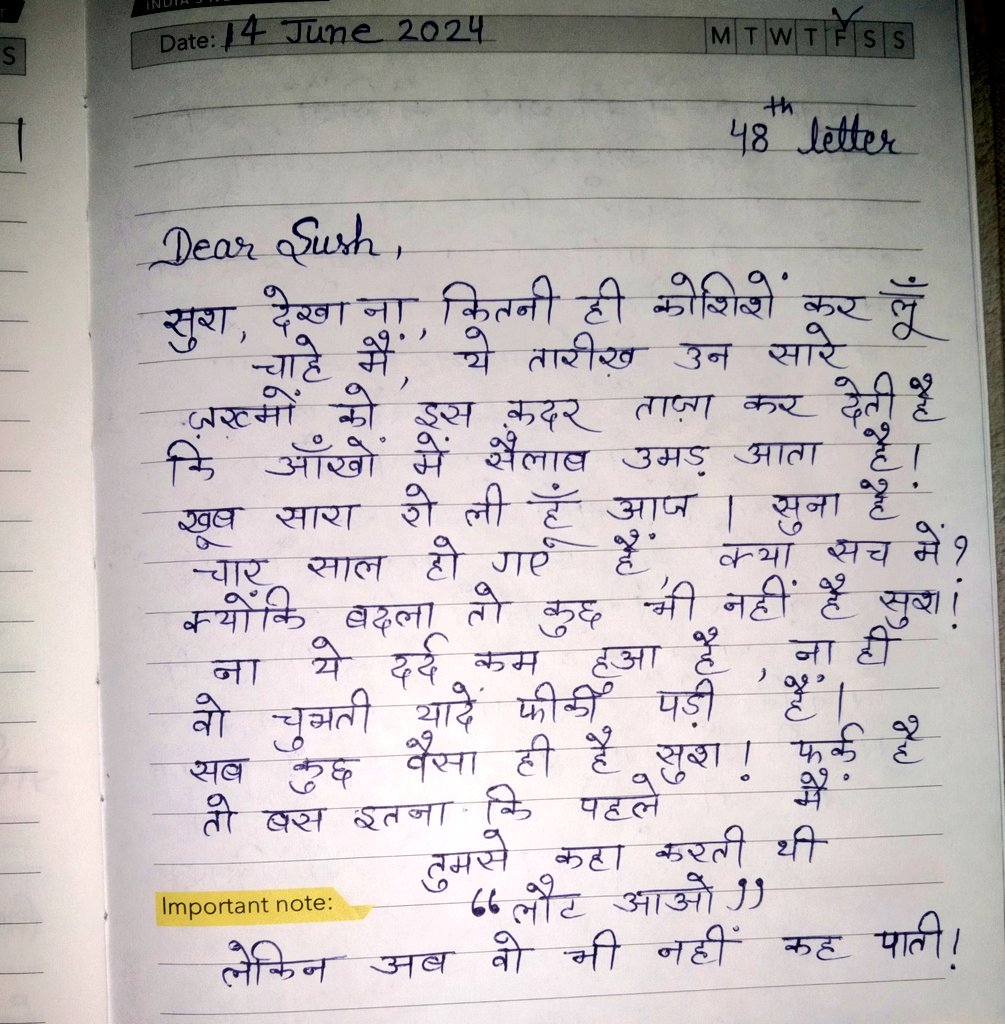 Date: 14 June 2024 M T W T F S S
48th letter
Dear Sush,
सुश, देखा ना, कितनी ही कोशिशें कर लूँ
चाहे मैं, ये तारीख़ उन सारे
ज़ख्मों को इस क़दर ताज़ा कर देती है
कि आँखों में सैलाब उमड़ आता है।
खूब सारा रो ली हूँ आज। सुना है
चार साल हो गए हैं, क्या सच में?
क्योंकि बदला तो कुछ भी नहीं है सुश!
ना ये दर्द कम हुआ है, ना ही
वो चुभती यादें फीकी पड़ी हैं।
सब कुछ वैसा ही है सुश! फर्क है
तो बस इतना कि पहले मैं
तुमसे कहा करती थी
Important note: "लौट आओ"
लेकिन अब वो भी नहीं कह पाती!